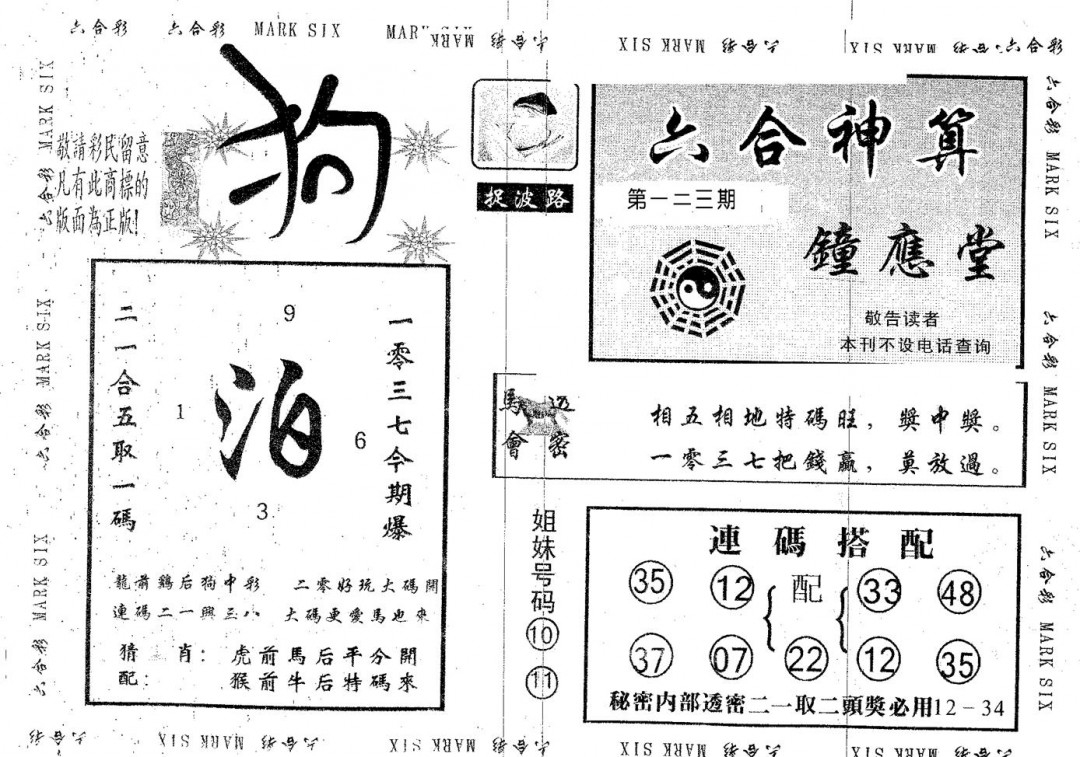 六合彩 六合彩 MARK SIX MAR MARK 六合彩
MARK SIX 六合彩 MARK SIX 六合彩 六合彩
六合彩 MARK SIX 六合彩 MARK SIX 六合彩 MARK SIX
狗
敬請彩民留意
凡有此商標的
版面為正版!
二一合五取一碼
9
1
泊
6
3
一零三七今期爆
龍前鷄后狗中彩 二零好玩大碼開
連碼二一興三八 大碼更愛馬也來
猜 肖: 虎前馬后平分開
配: 猴前牛后特碼來
捉波路
六合神算
第一二三期
鐘應堂
敬告读者
本刊不设电话查询
馬會
透密
相五相地特碼旺,獎中獎。
一零三七把錢贏,莫放過。
姐妹号码
10
11
連碼搭配
35 12 配 33 48
37 07 22 12 35
秘密内部透密二一取二頭獎必用12-34
六合彩 MARK SIX 六合彩 MARK SIX 六合彩 MARK SIX
六合彩 MARK SIX 六合彩 MARK SIX 六合彩 MARK SIX 六合彩 MARK SIX 六合彩